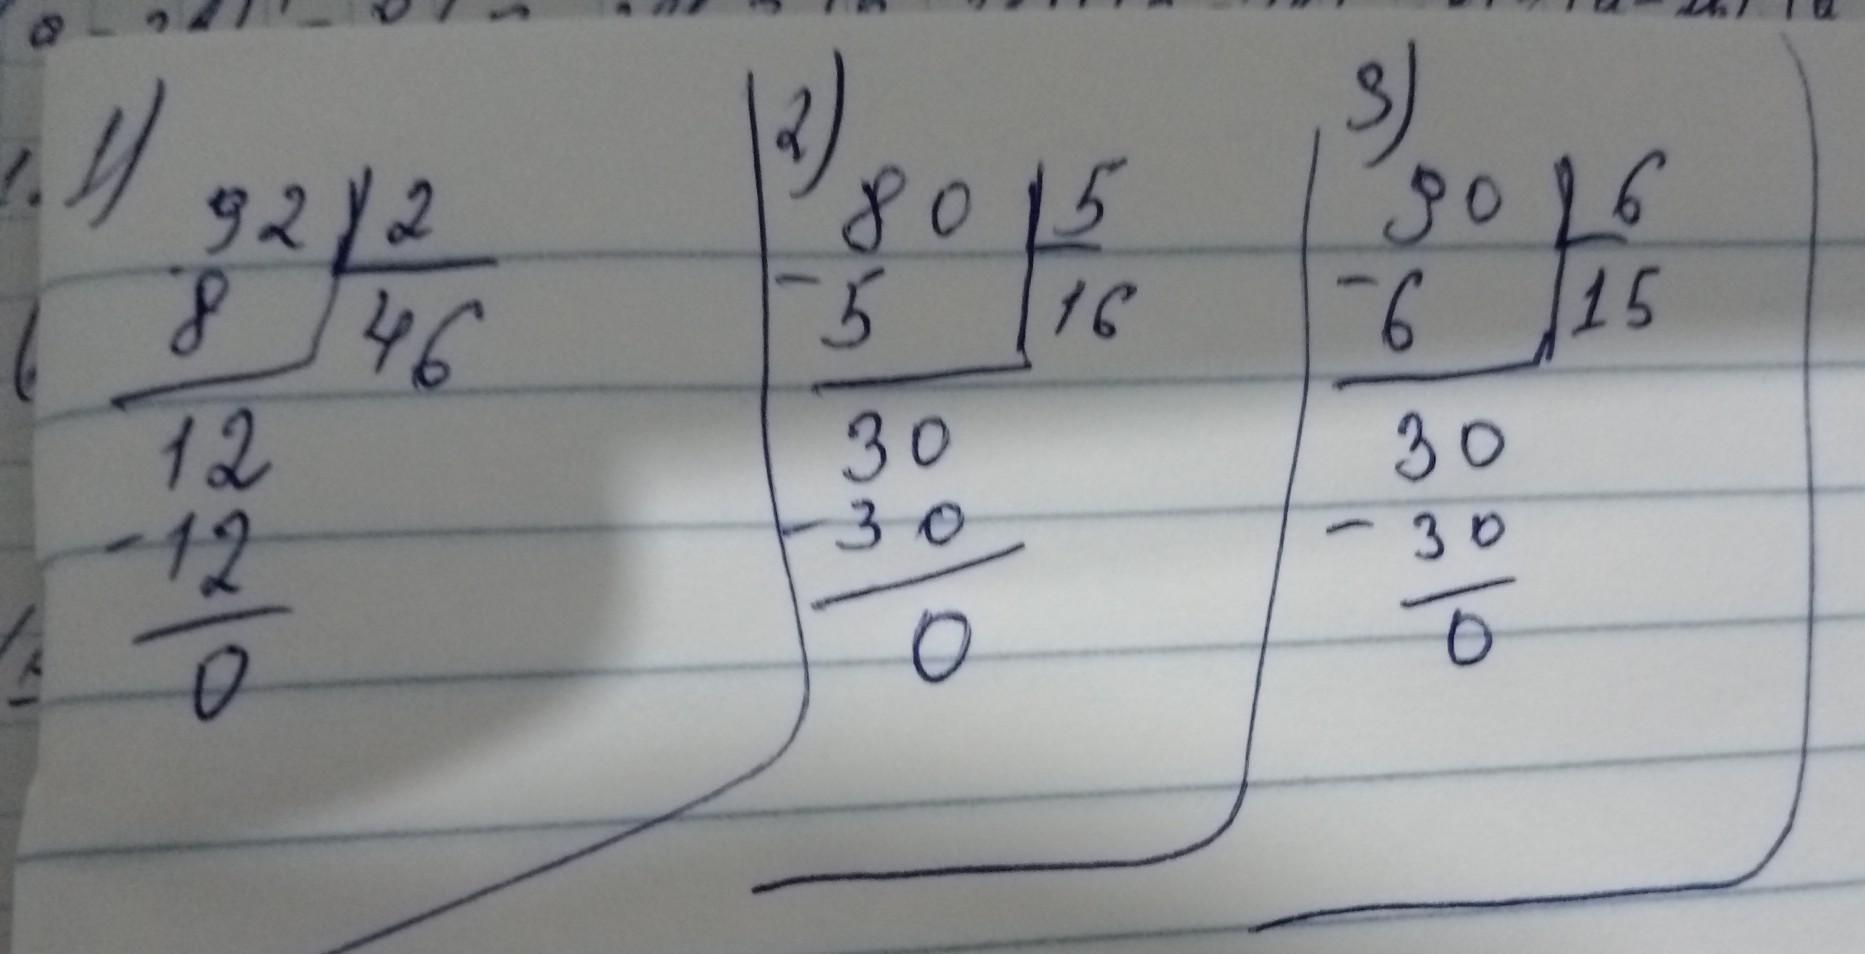 1)
92 2
8 46
12
-12
0
2)
80 5
-5 16
30
-30
0
3)
90 6
-6 15
30
-30
0